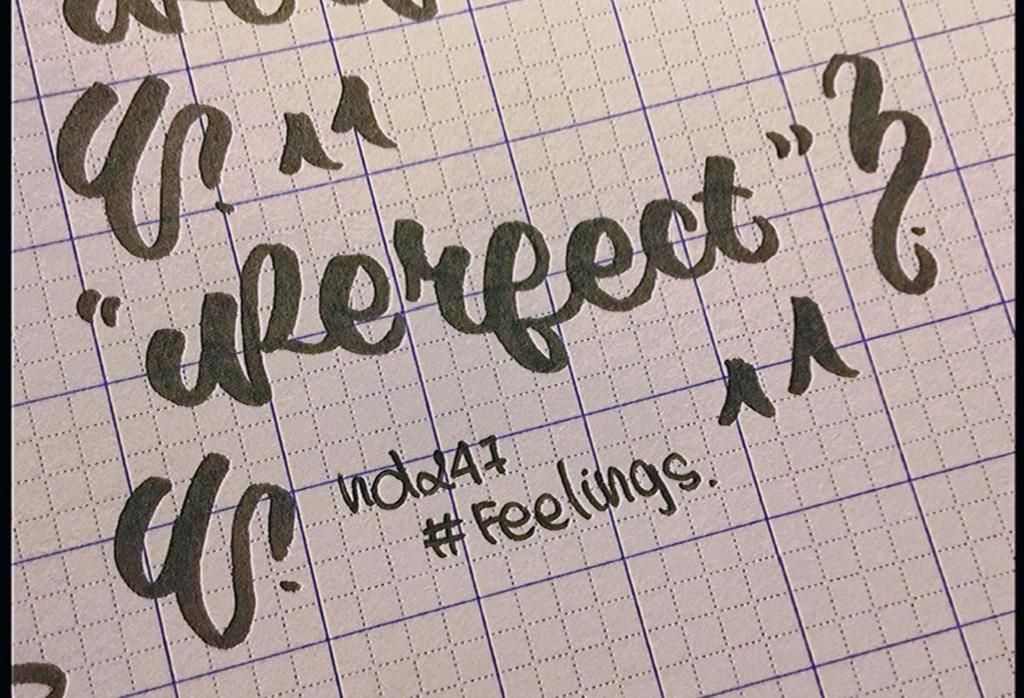 “Perfect”
nd247
#Feelings.